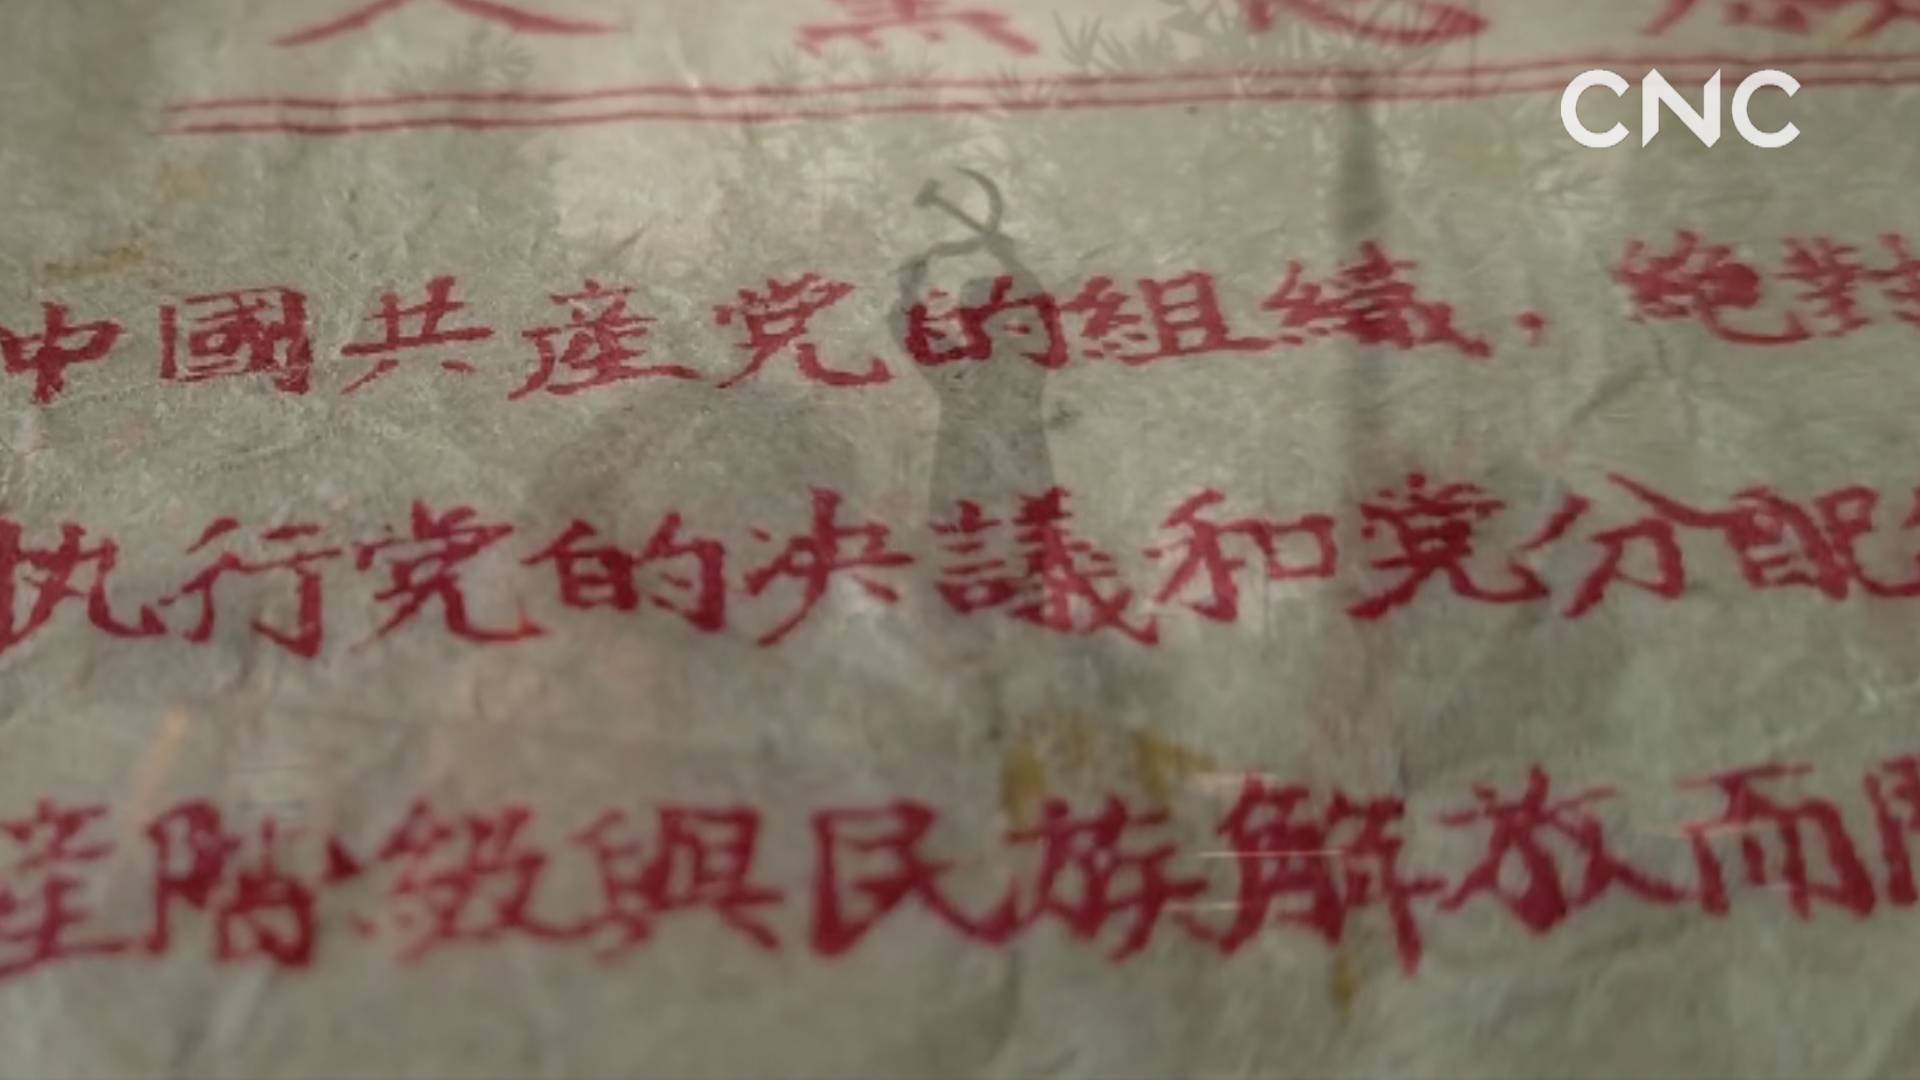 入黨志願
CNC
中國共產党的組織，絶對
执行党的决議和党分配
產階級與民族解放而